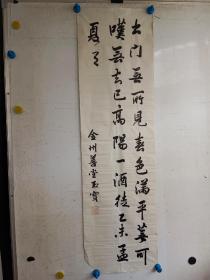 出门无所见春色满平芜可
叹无知己高阳一酒徒乙未孟
夏
金州善堂玉实